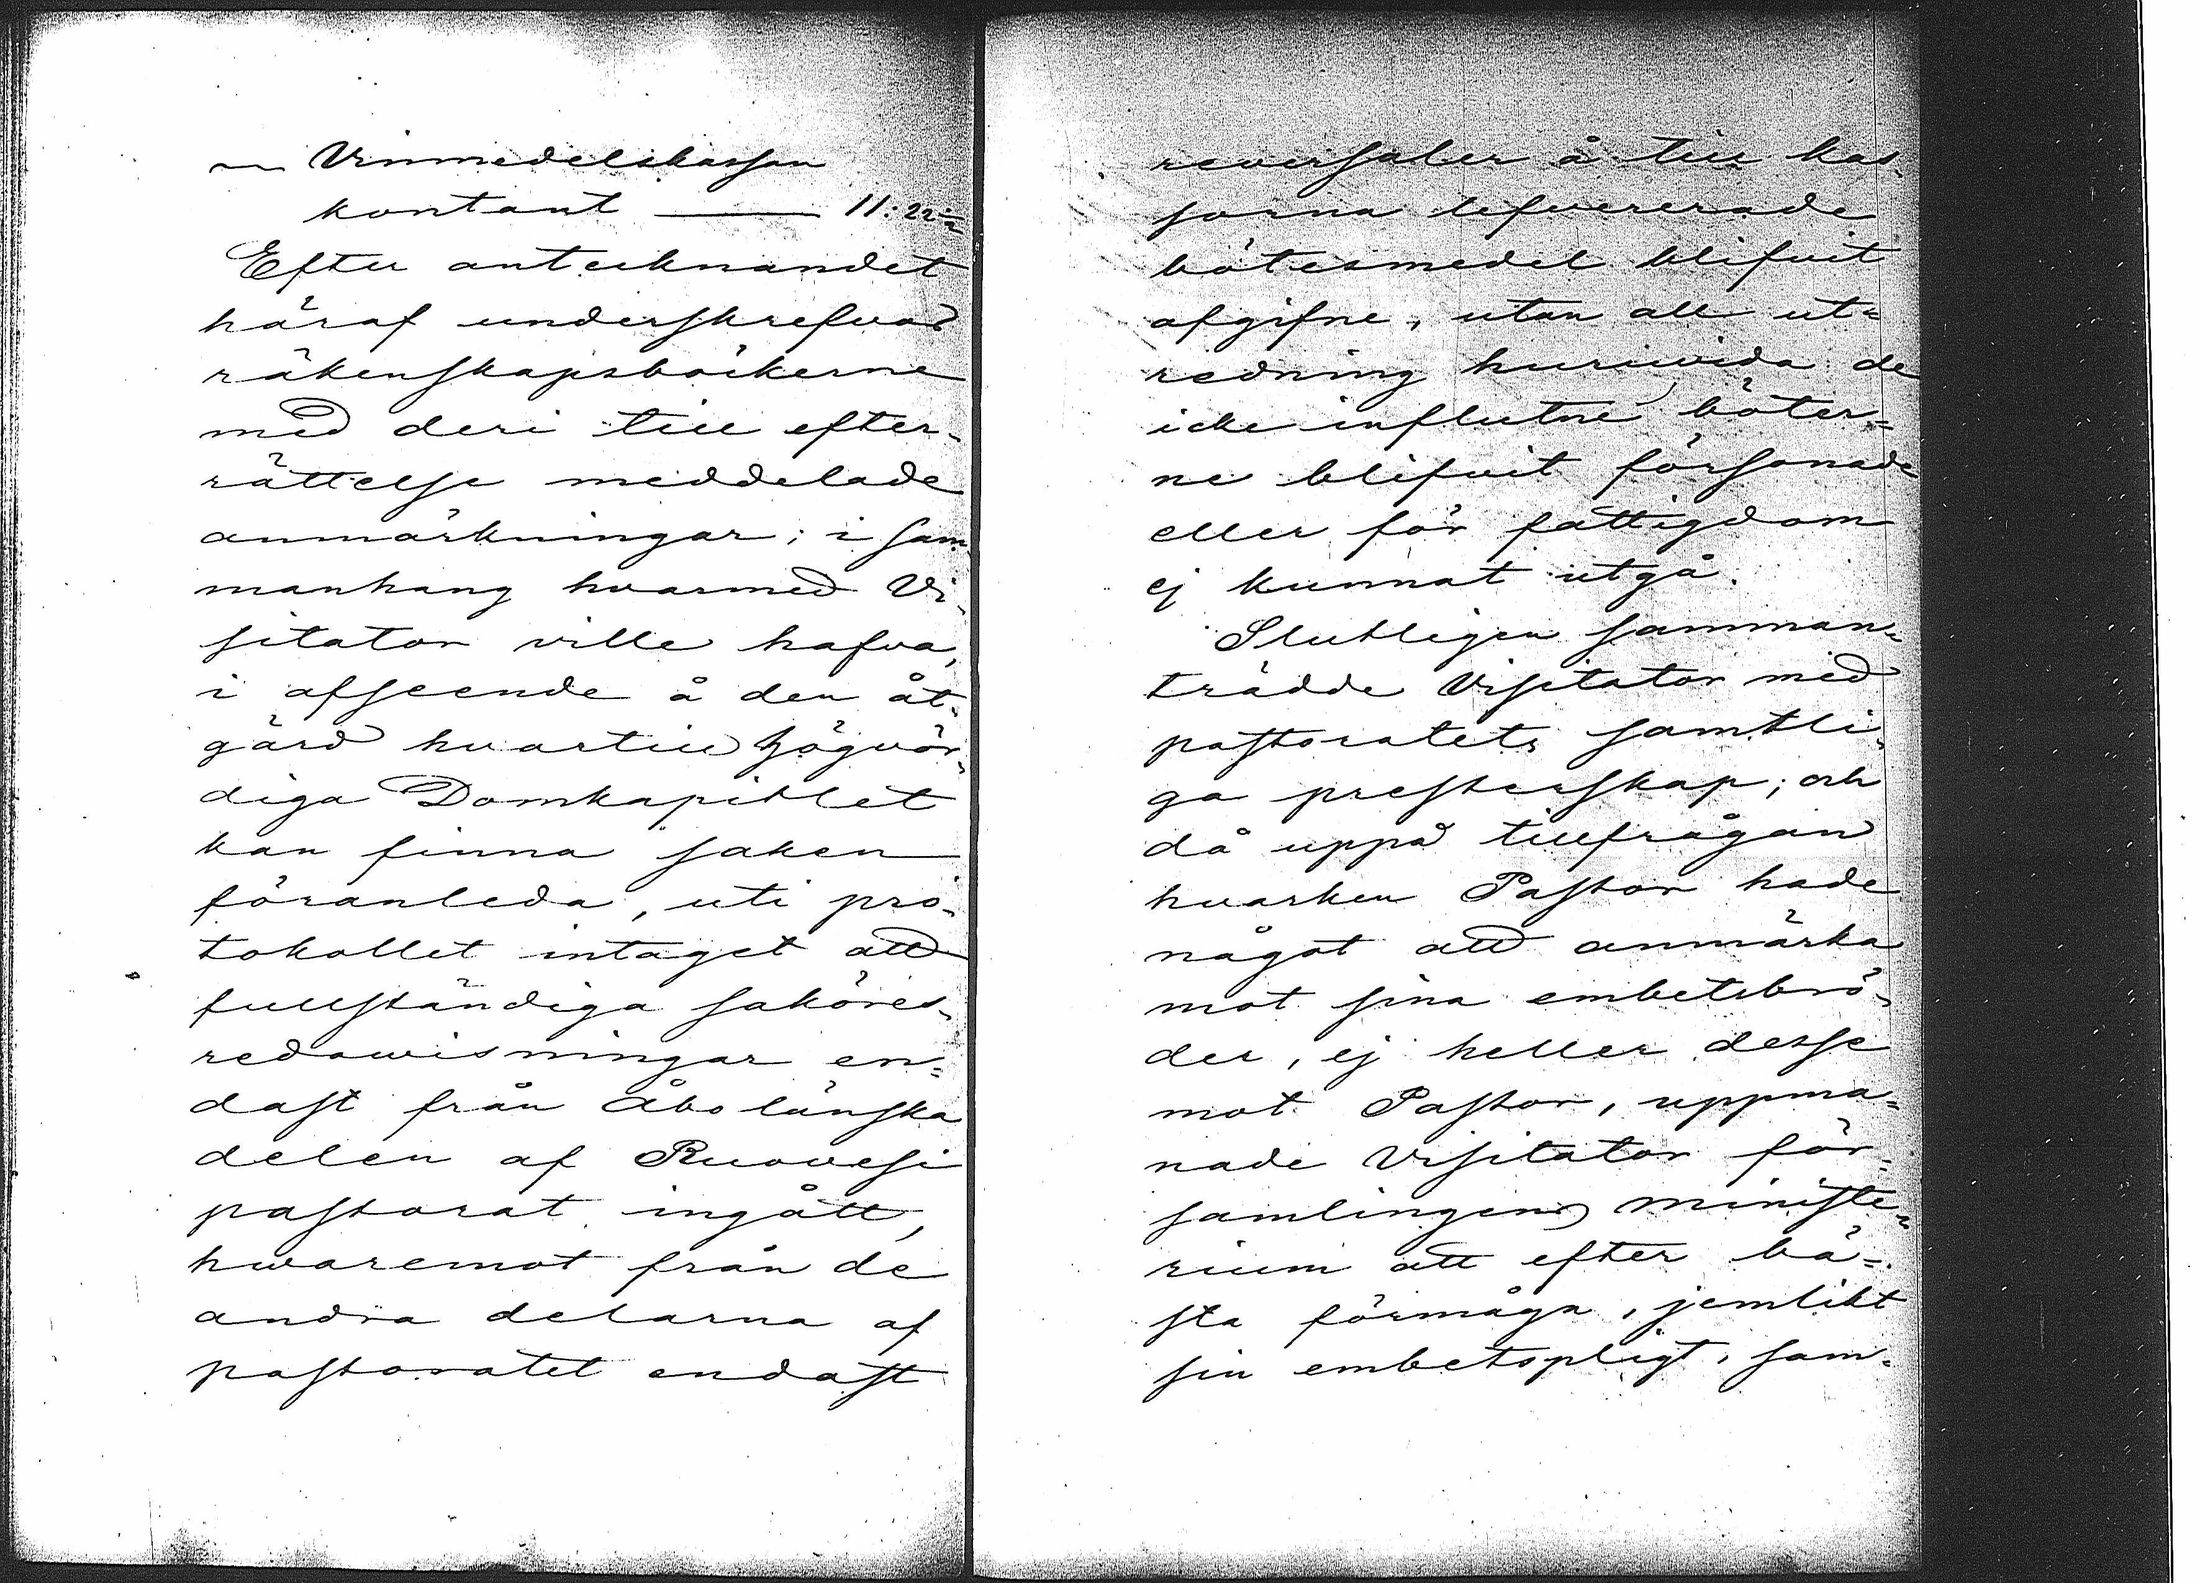 ~ Vinmedelskassan
kontant — 11: 22
Efter antecknandet
häraf underskrefvos
räkenskapsböckerne
med deri till efter-
rättelse meddelade
anmärkningar; i sam
manhang hvarmed Vi-
sitator ville hafva,
i afseende å den åt-
gärd hvartill Högvör-
diga Domkapitlet
kan finna saken
föranleda, uti pro-
tokollet intaget att
fullständiga saköres-
redovisningar en=
dast från Åbo länska
delen af Ruovesi
pastorat ingått,
hwaremot från de
andra delarna af
pastoratet endast
reversaler å till kas-
sorna lefvererade
bötesmedel blifvit
afgifne, utan all ut=
redning huruvida de
icke influtne böter=
ne blifvit försonade
eller för fattigdom
ej kunnat utgå.
Slutligen samman-
trädde Visitator med
pastoratets samtli-
ga presterskap; och
då uppå tillfrågan
hvarken Pastor hade
något att anmärka
mot sina embetsbrö-
der, ej heller desse
mot Pastor, uppma=
nade Visitator för-
samlingens ministe-
rium att efter bä=
sta förmåga, jemlikt
sin embetspligt, sam-